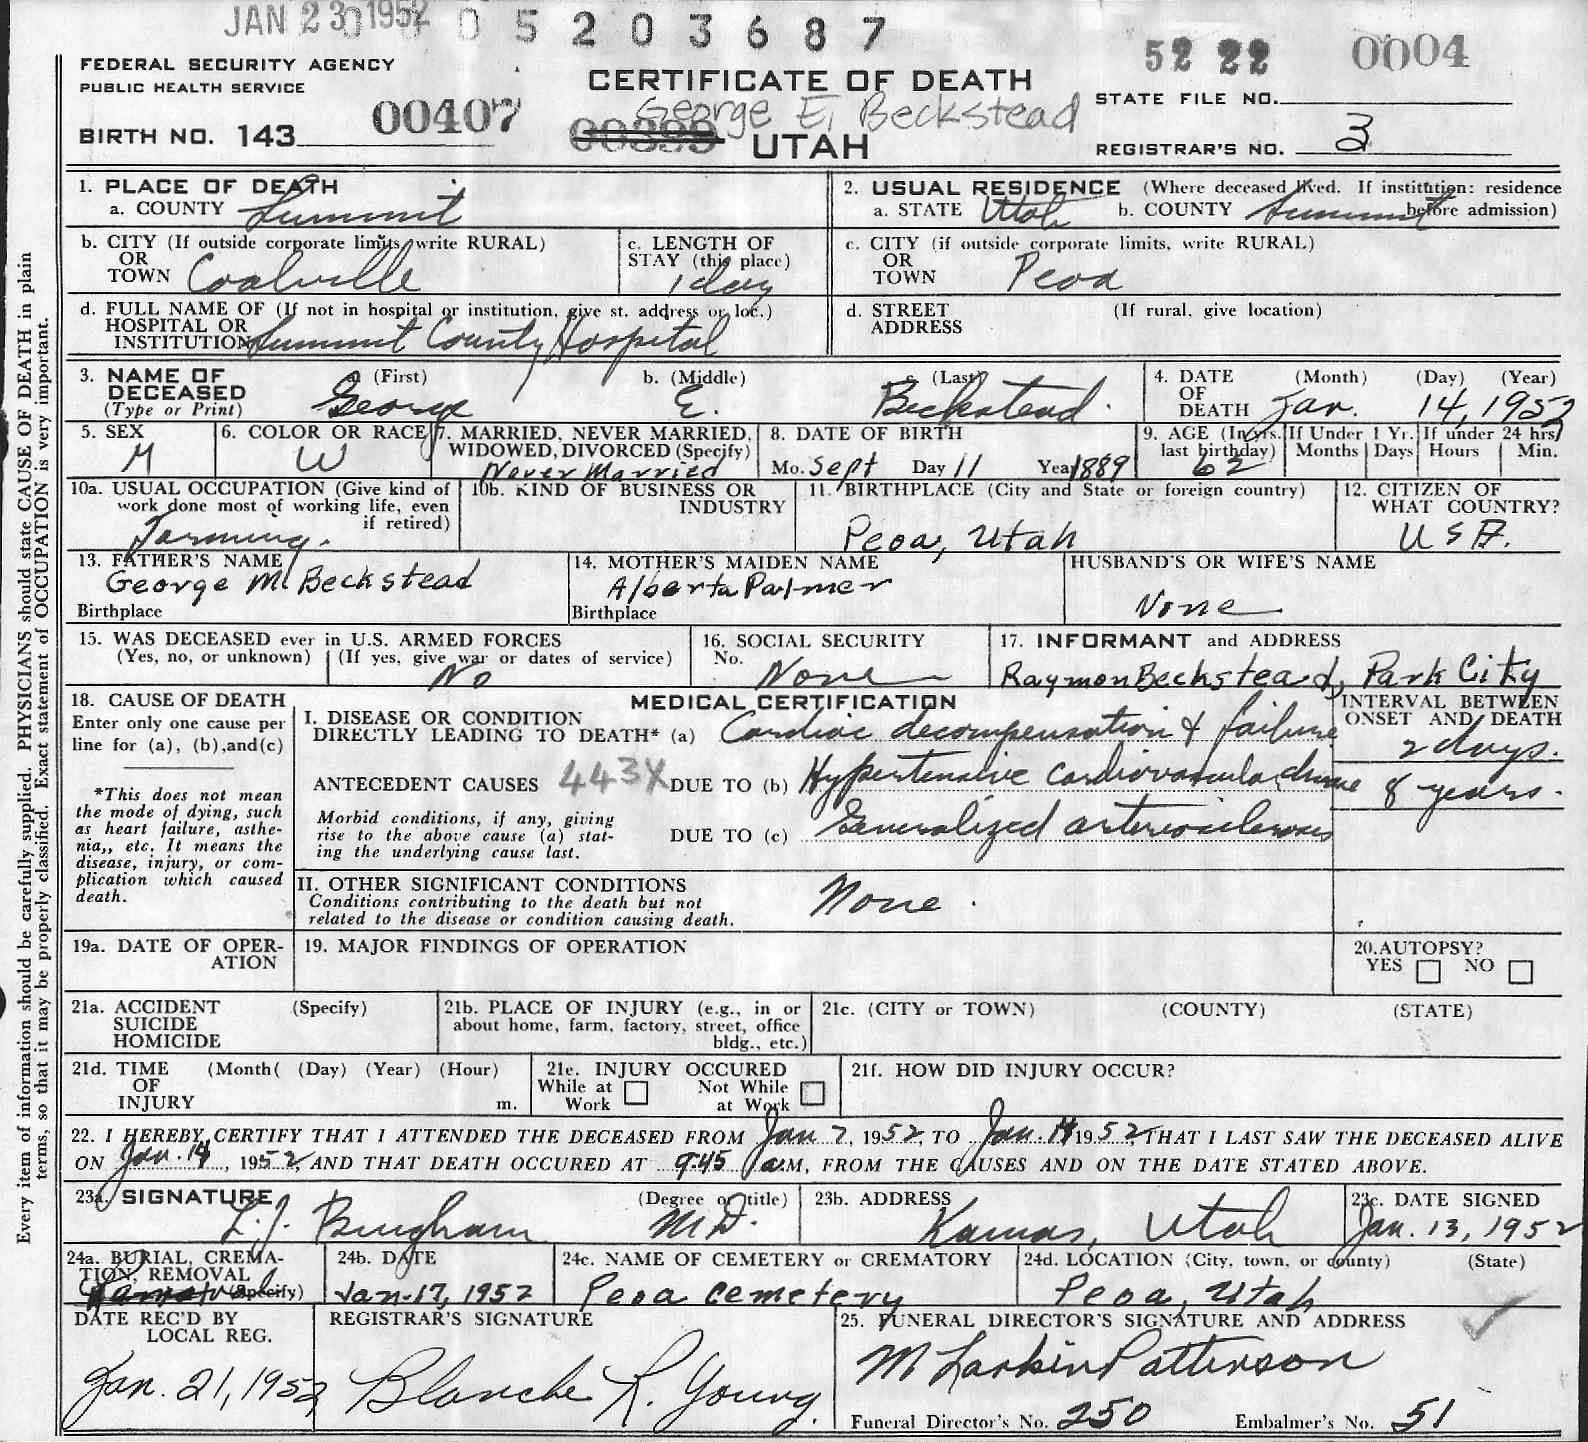 JAN 23 1952 0 5 2 0 3 6 8 7
FEDERAL SECURITY AGENCY
PUBLIC HEALTH SERVICE
BIRTH NO. 143
00407
CERTIFICATE OF DEATH
George E. Beckstead
00399 UTAH
52 22 0004
STATE FILE NO.
REGISTRAR'S NO. 3
Every item of information should be carefully supplied. PHYSICIANS should state CAUSE OF DEATH in plain
terms, so that it may be properly classified. Exact statement of OCCUPATION is very important.
1. PLACE OF DEATH
a. COUNTY Summit
2. USUAL RESIDENCE (Where deceased lived. If institution: residence
a. STATE Utah b. COUNTY Summit before admission)
b. CITY (If outside corporate limits, write RURAL)
OR
TOWN Coalville
c. LENGTH OF
STAY (this place)
1 day
c. CITY (if outside corporate limits, write RURAL)
OR
TOWN Peoa
d. FULL NAME OF (If not in hospital or institution, give st. address or loc.)
HOSPITAL OR
INSTITUTION Summit County Hospital
d. STREET (If rural, give location)
ADDRESS
3. NAME OF
DECEASED
(Type or Print)
a. (First) b. (Middle) c. (Last)
George E. Beckstead
4. DATE (Month) (Day) (Year)
OF
DEATH Jan. 14, 1952
5. SEX
M
6. COLOR OR RACE
W
7. MARRIED, NEVER MARRIED,
WIDOWED, DIVORCED (Specify)
Never Married
8. DATE OF BIRTH
Mo. Sept Day 11 Year 1889
9. AGE (In yrs.
last birthday)
62
If Under 1 Yr.
Months Days
If under 24 hrs
Hours Min.
10a. USUAL OCCUPATION (Give kind of
work done most of working life, even
if retired)
Farming.
10b. KIND OF BUSINESS OR
INDUSTRY
11. BIRTHPLACE (City and State or foreign country)
Peoa, Utah
12. CITIZEN OF
WHAT COUNTRY?
U S A.
13. FATHER'S NAME
George M. Beckstead
Birthplace
14. MOTHER'S MAIDEN NAME
Alberta Palmer
Birthplace
HUSBAND'S OR WIFE'S NAME
None
15. WAS DECEASED ever in U.S. ARMED FORCES
(Yes, no, or unknown) (If yes, give war or dates of service)
No
16. SOCIAL SECURITY
No.
None
17. INFORMANT and ADDRESS
Raymon Beckstead, Park City
18. CAUSE OF DEATH
Enter only one cause per
line for (a), (b),and(c)
*This does not mean
the mode of dying, such
as heart failure, asthe-
nia,, etc. It means the
disease, injury, or com-
plication which caused
death.
MEDICAL CERTIFICATION
I. DISEASE OR CONDITION
DIRECTLY LEADING TO DEATH* (a) Cardiac decompensation & failure
ANTECEDENT CAUSES 443X DUE TO (b) Hypertensive cardiovascular disease
Morbid conditions, if any, giving
rise to the above cause (a) stat-
ing the underlying cause last.
DUE TO (c) Generalized arteriosclerosis
INTERVAL BETWEEN
ONSET AND DEATH
2 days.
8 years.
II. OTHER SIGNIFICANT CONDITIONS
Conditions contributing to the death but not
related to the disease or condition causing death.
None.
19a. DATE OF OPER-
ATION
19. MAJOR FINDINGS OF OPERATION
20.AUTOPSY?
YES NO
21a. ACCIDENT (Specify)
SUICIDE
HOMICIDE
21b. PLACE OF INJURY (e.g., in or
about home, farm, factory, street, office
bldg., etc.)
21c. (CITY or TOWN) (COUNTY) (STATE)
21d. TIME (Month( (Day) (Year) (Hour)
OF
INJURY m.
21e. INJURY OCCURED
While at Not While
Work at Work
21f. HOW DID INJURY OCCUR?
22. I HEREBY CERTIFY THAT I ATTENDED THE DECEASED FROM Jan 7, 1952, TO Jan. 14 1952, THAT I LAST SAW THE DECEASED ALIVE
ON Jan. 14, 1952, AND THAT DEATH OCCURED AT 9:45 a.M, FROM THE CAUSES AND ON THE DATE STATED ABOVE.
23a. SIGNATURE (Degree or title)
L.J. Bingham M.D.
23b. ADDRESS
Kamas, Utah
23c. DATE SIGNED
Jan. 13, 1952
24a. BURIAL, CREMA-
TION, REMOVAL
(Specify)
24b. DATE
Jan-17, 1952
24c. NAME OF CEMETERY or CREMATORY
Peoa Cemetery
24d. LOCATION (City, town, or county) (State)
Peoa, Utah
DATE REC'D BY
LOCAL REG.
Jan. 21, 1952
REGISTRAR'S SIGNATURE
Blanche R. Young.
25. FUNERAL DIRECTOR'S SIGNATURE AND ADDRESS
M Larkin Patterson
Funeral Director's No. 250 Embalmer's No. 51